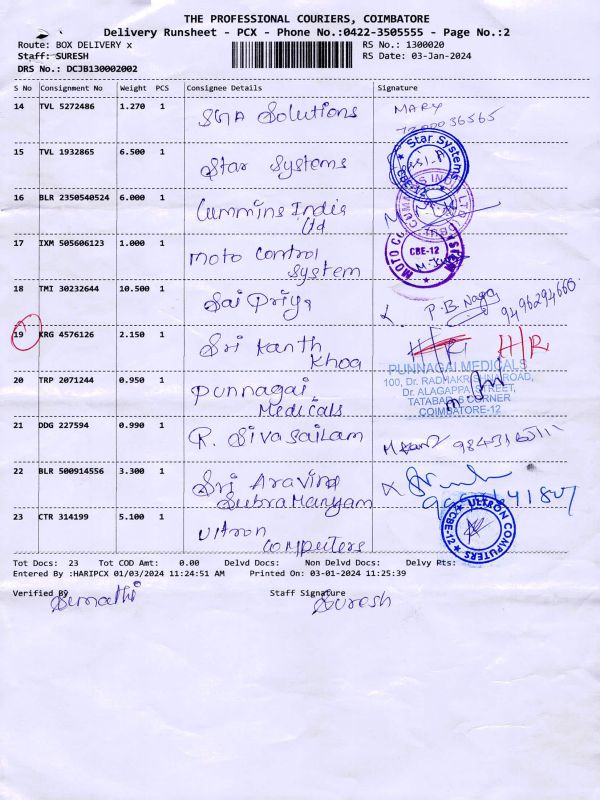 THE PROFESSIONAL COURIERS, COIMBATORE
Delivery Runsheet - PCX - Phone No.:0422-3505555 - Page No.:2
Route: BOX DELIVERY x RS No.: 1300020
Staff: SURESH RS Date: 03-Jan-2024
DRS No.: DCJB130002002
S No Consignment No Weight PCS Consignee Details Signature
14 TVL 5272486 1.270 1 SGA Solutions MARY
36565
15 TVL 1932865 6.500 1 Star Systems Star Systems CBE-12
16 BLR 2350540524 6.000 1 Cummins India
Ltd
17 IXM 505606123 1.000 1 Moto Control
System MOTO CO SYSTEM CBE-12
18 TMI 30232644 10.500 1 Sai Priya P.B. Naga
9496294660
19 KRG 4576126 2.150 1 Sri Kanth
Khoa H/R H/R
20 TRP 2071244 0.950 1 Punnagai
Medicals
PUNNAGAI MEDICALS
100, Dr. RADHAKRISHNA ROAD,
Dr. ALAGAPPA STREET,
TATABAD, 6 CORNER
COIMBATORE-12
21 DDG 227594 0.990 1 R. Sivasailam
22 BLR 500914556 3.300 1 Sri Aravind
Subramanyam
23 CTR 314199 5.100 1 Ultron
Computers ULTRON COMPUTERS CBE-12
Tot Docs: 23 Tot COD Amt: 0.00 Delvd Docs: Non Delvd Docs: Delvy Pts:
Entered By :HARIPCX 01/03/2024 11:24:51 AM Printed On: 03-01-2024 11:25:39
Verified By Sumathi Staff Signature Suresh